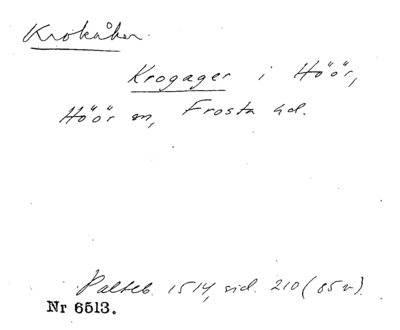 Krokåker.
Krogager i Höör,
Höör sn, Frosta hd.
Palteb. 1514, sid. 210 (85 v).
Nr 6513.